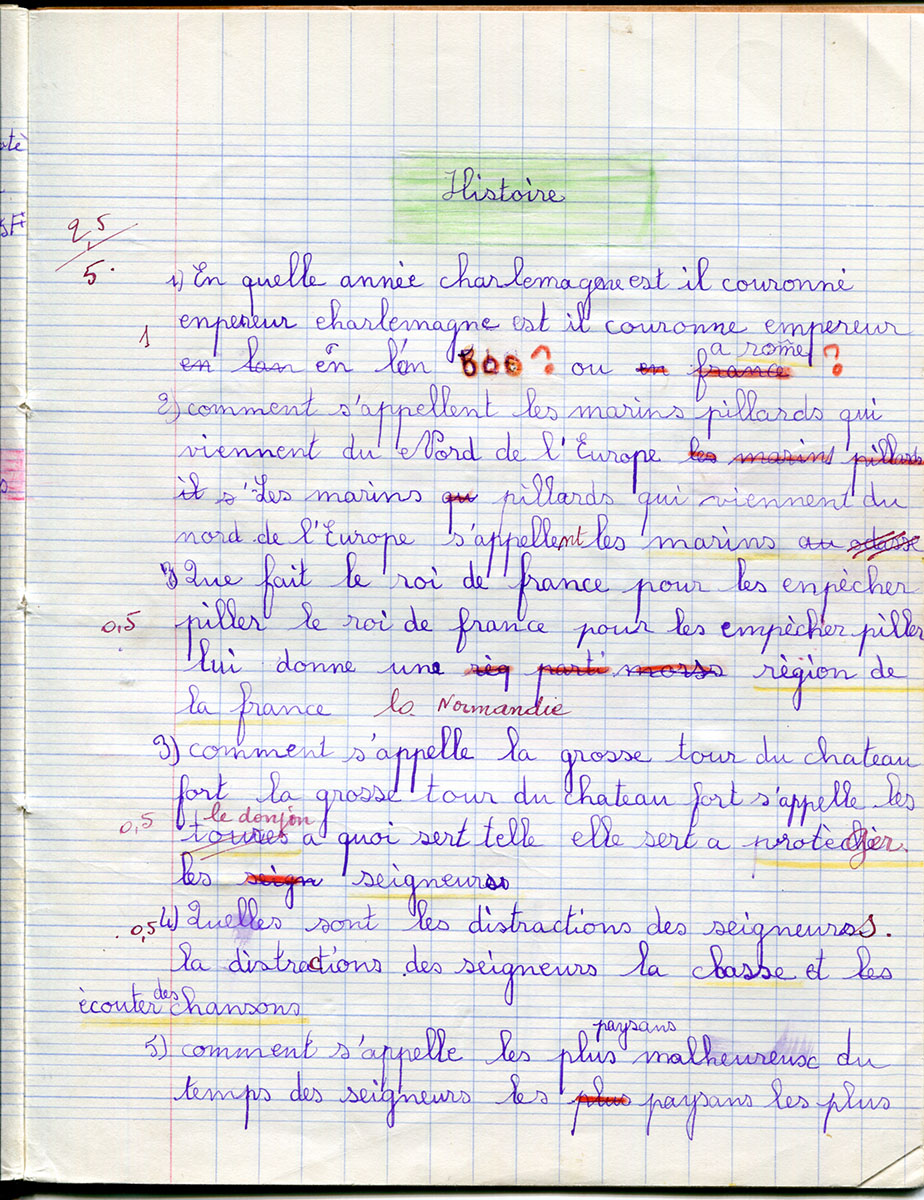 Histoire
2,5
5.
1) En quelle année charlemagne est il couronné
1
enpereur charlemagne est il couronne empereur
a rome
en lan en l'an 800? ou en france ?
2) comment s'appellent les marins pillards qui
viennent du Nord de l'Europe les marins pillards
il s' Les marins qu pillards qui viennent du
nord de l'Europe s'appellent les marins au
3) Que fait le roi de france pour les enpècher
0,5
piller le roi de france pour les empècher piller
lui donne une règ parti règion de
la france la Normandie
3) comment s'appelle la grosse tour du chateau
fort la grosse tour du chateau fort s'appelle les
le donjon
0,5
toures a quoi sert telle elle sert a protèger.
les seign seigneurs
0,5
4) Quelles sont les distractions des seigneurs.
la distractions des seigneurs la chasse et les
des
écouter chansons
paysans
5) comment s'appelle les plus malheureux du
temps des seigneurs les plus paysans les plus